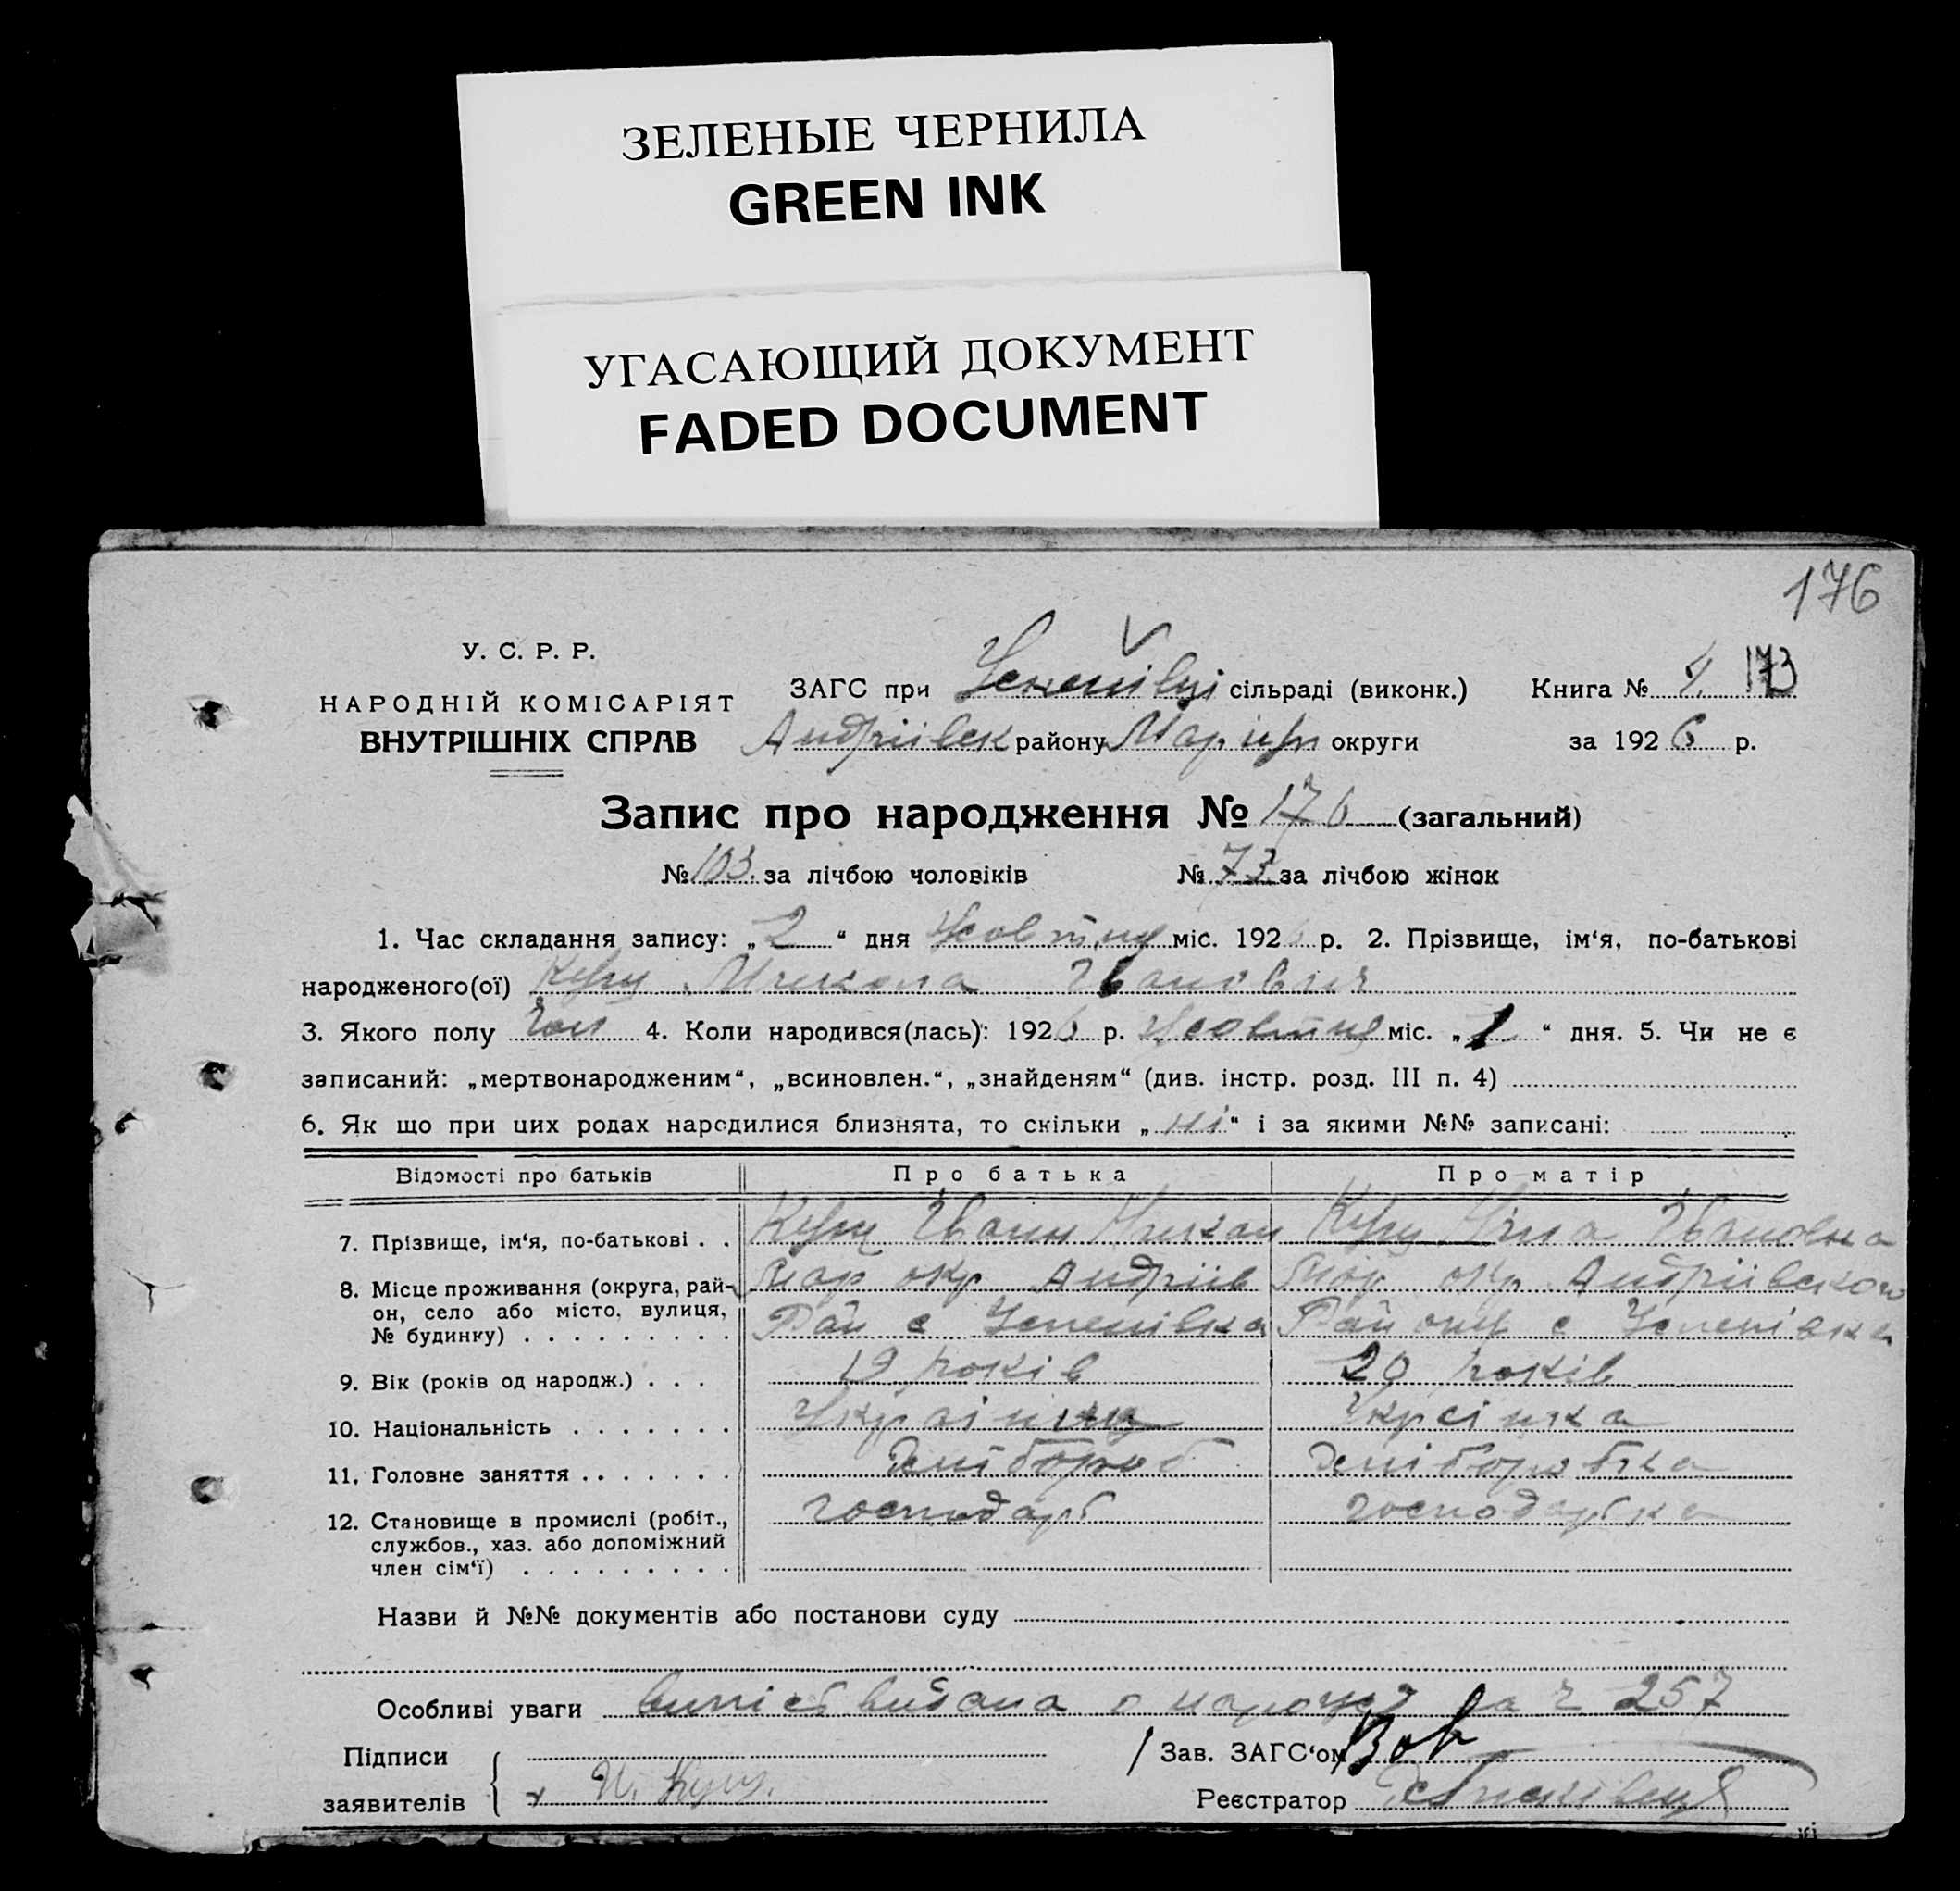 ЗЕЛЕНЫЕ ЧЕРНИЛА
GREEN INK
УГАСАЮЩИЙ ДОКУМЕНТ
FADED DOCUMENT
176
У. С. Р. Р.
НАРОДНІЙ КОМІСАРІЯТ
ВНУТРІШНІХ СПРАВ
ЗАГС при сільраді (виконк.) Книга № 173
Андріівск району Маріуп округи за 1926 р.
Запис про народження № 176 (загальний)
№ 103 за лічбою чоловіків № 73 за лічбою жінок
1. Час складання запису: „2“ дня Жовтня міс. 1926 р. 2. Прізвище, ім‘я, по-батькові
народженого(ої) Кущ Микола Іванович
3. Якого полу чол 4. Коли народився(лась): 1926 р. Жовтня міс. „1“ дня. 5. Чи не є
записаний: „мертвонародженим“, „всиновлен.“, „знайденям“ (див. інстр. розд. III п. 4)
6. Як що при цих родах народилися близнята, то скільки „ні“ і за якими №№ записані:
Відомості про батьків Про батька Про матір
7. Прізвище, ім‘я, по-батькові . . Кущ Іван Кущ Івановна
8. Місце проживання (округа, рай- Мар окр Андріів Мар окр Андріівского
он, село або місто, вулиця, Рай с Успенівка Району с Успенівка
№ будинку) . . . . . . . . .
9. Вік (років од народж.) . . . 19 років 20 років
10. Національність . . . . . . . Українець Українка
11. Головне заняття . . . . . . . Хлібороб Хліборобка
12. Становище в промислі (робіт., господарь господарька
службов., хаз. або допоміжний
член сім‘ї) . . . . . . . . .
Назви й №№ документів або постанови суду
Особливі уваги випісь видана о за 257
Підписи Зав. ЗАГС‘ом
заявителів И. Кущ. Реєстратор